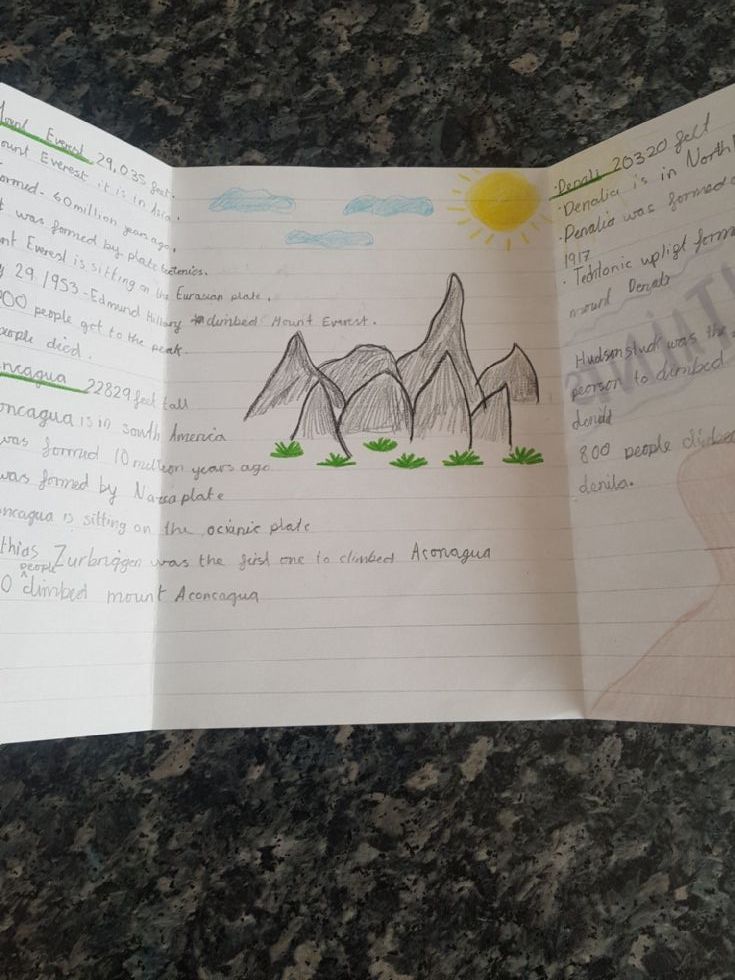 Mount Everest 29,035 feet.
ount Everest it is in Asia.
ormed - 60 million years ago.
t was formed by plate tectonics.
nt Everest is sitting on the Eurasian plate.
y 29, 1953 - Edmund Hillary climbed Mount Everest.
00 people get to the peak.
people died.
ncagua 22829 feet tall
oncagua is in south America
was formed 10 million years ago
was formed by Nazca plate
oncagua is sitting on the ocianic plate
thias Zurbriggen was the first one to climbed Aconagua
0 people climbed mount Aconcagua
· Denali 20320 feet
· Denalia is in North
· Penalia was formed
1917
· Techtonic upligt form
mount Denali
Hudson stuck was the
peorson to climbed
denali
800 people
denila.